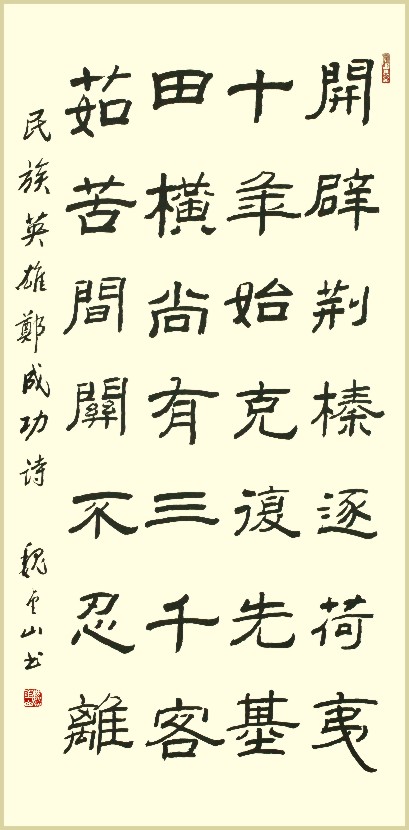 開闢荊榛逐荷夷
十年始克復先基
田橫尚有三千客
茹苦間關不忍離
民族英雄鄭成功诗 魏雲山书